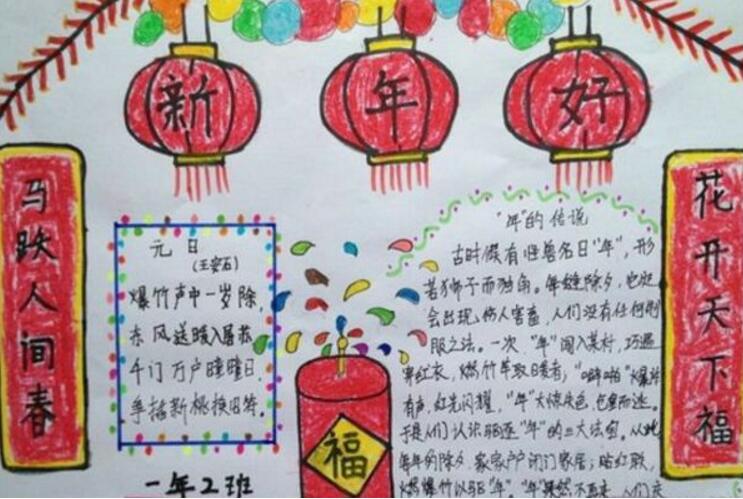 新年好
马跃人间春
花开天下福
元日
(王安石)
爆竹声中一岁除,
东风送暖入屠苏
千门万户曈曈日,
新桃换旧符。
一年2班
福
"年"的传说
古时候有怪兽名曰"年",形
若狮子而独角。每逢除夕,
会出现,伤人害畜,人们没有任何制
服之法。一次,"年"闯入某村,巧遇
穿红衣,燃竹 取暖者;"噼啪"爆炸
有声,红光闪耀,"年"大惊失色, 而逃。
于是人们认识驱逐"年"的三大法 。从此
每年的除夕,家家户户闭门家居;贴红联,
燃爆竹以驱"年"。"年"果然不再来,人们